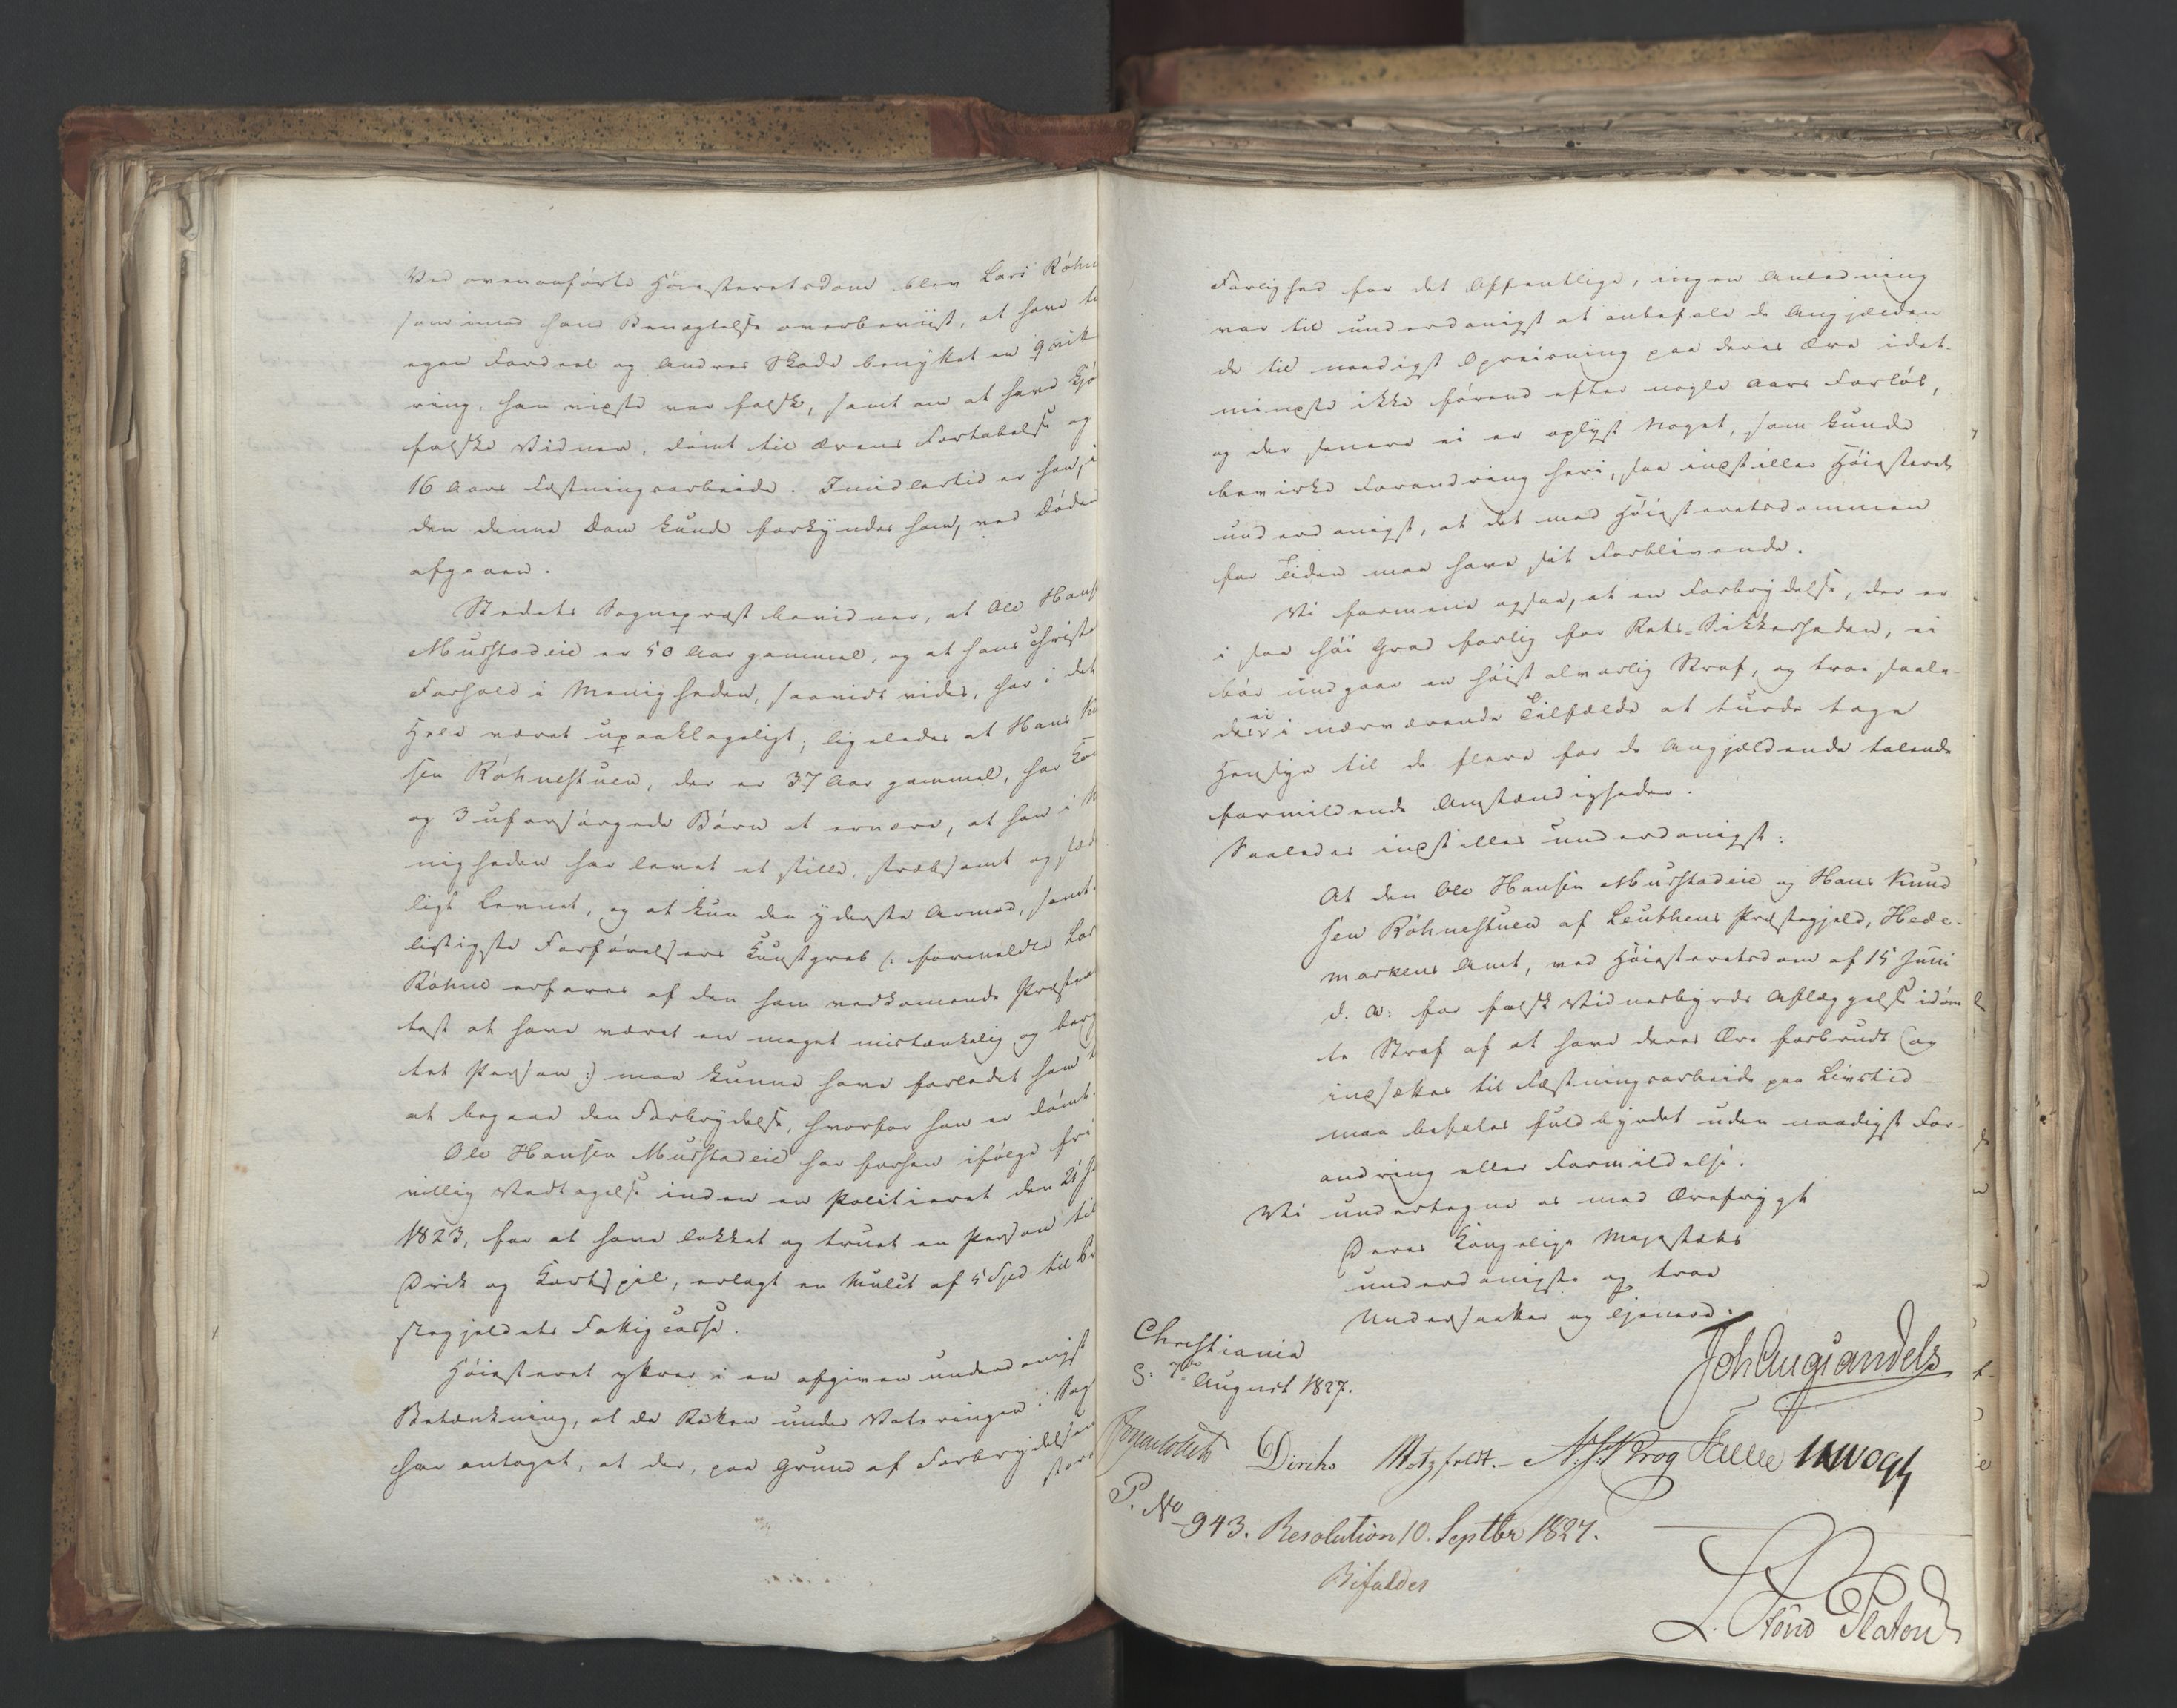 Ved ovenanførte Höiesteretsdom blev Lars Röhne
som imod hans Benægtelse overbeviist, at have til
egen Fordeel og Andres Skade benyttet en Qvit-
ring, han vidste var falsk, samt om at have kjö
falske Vidner, dömt til Ærens Fortabelse og
16 Aars Fæstningsarbeide. Imidlertid er han, i
den denne Dom kunde forkyndes ham, ved Döden
afgaaen.
Stedets Sognepræst bevidner, at Ole Hans
Murstadeie er 50 Aar gammel, og at hans Christe
Forhold i Menigheden, saavidt vides, har i det
Hele været upaaklageligt; ligeledes at Hans Kn
sen Röhnestuen, der er 37 Aar gammel, har Ko
og 3 uforsörgede Börn at ernære, at han i M
nigheden har levet et stille, stræbsomt og sæde
ligt Levnet, og at kun den yderste Armod, samt
listigste Forförelsers Kunstgreb (: formeldte Lars
Röhne erfares af den ham vedkomende Præsteat-
test at have været en meget mistænkelig og beryg
tet Person :) maa kunne have forledet ham t
at begaae den Forbrydelse, hvorfor han er dömt.
Ole Hansen Murstadeie har forhen ifölge fri
villig Vedtagelse inden en Politieret den 21 J
1823, for at have lokket og truet en Person til
Drik og Kortspil, erlagt en Mulct af 5 Spd til Præ
stegjeldets Fattigcasse.
Höiesteret yttrer i en afgiven underdanigst
Betænkning, at da Retten under Voteringen i Sag
har antaget, at der, paa Grund af Forbrydelsens
store
Farlighed for det Offentlige, ingen Anledning
var til underdanigst at anbefale de Angjælden
de til naadigst Opreisning paa deres Ære idet-
mindste ikke förend efter nogle Aars Forlöb,
og der senere ei er oplyst Noget, som kunde
bevirke Forandring heri, saa indstiller Höiesteret
underdanigst, at det med Höiesteretsdommen
for Tiden maa have sit Forblivende.
Vi formene ogsaa, at en Forbrydelse, der er
i saa höi Grad farlig for Rets-Sikkerheden, ei
bör undgaae en höist alvorlig Straf, og troe saale-
des ei i nærværende Tilfælde at turde tage
Hensyn til de flere for de Angjældende talende
formildende Omstændigheder.
Saaledes indstilles underdanigst:
At den Ole Hansen Murstadeie og Hans Knud
sen Röhnestuen af Leuthens Præstegjeld, Hede-
markens Amt, ved Höiesteretsdom af 15 Juni
d. A: for falsk Vidnesbyrds Aflæggelse idöm
te Straf af at have deres Ære forbrudt og
indsættes til Fæstningsarbeide paa Livstid -
maa befales fuldbyrdet uden naadigst For-
andring eller Formildelse.
Vi undertegne os med Ærefrygt
Deres Kongelige Majestæts
underdanigste og troe
Undersaatter og Tjenere.
Christiania
d: 7de August 1827.
Joh Aug Sandels
Diriks Motzfeldt. N. J. Krog Fasting
P. No 943. Resolution 10. Septbr 1827.
Bifaldes